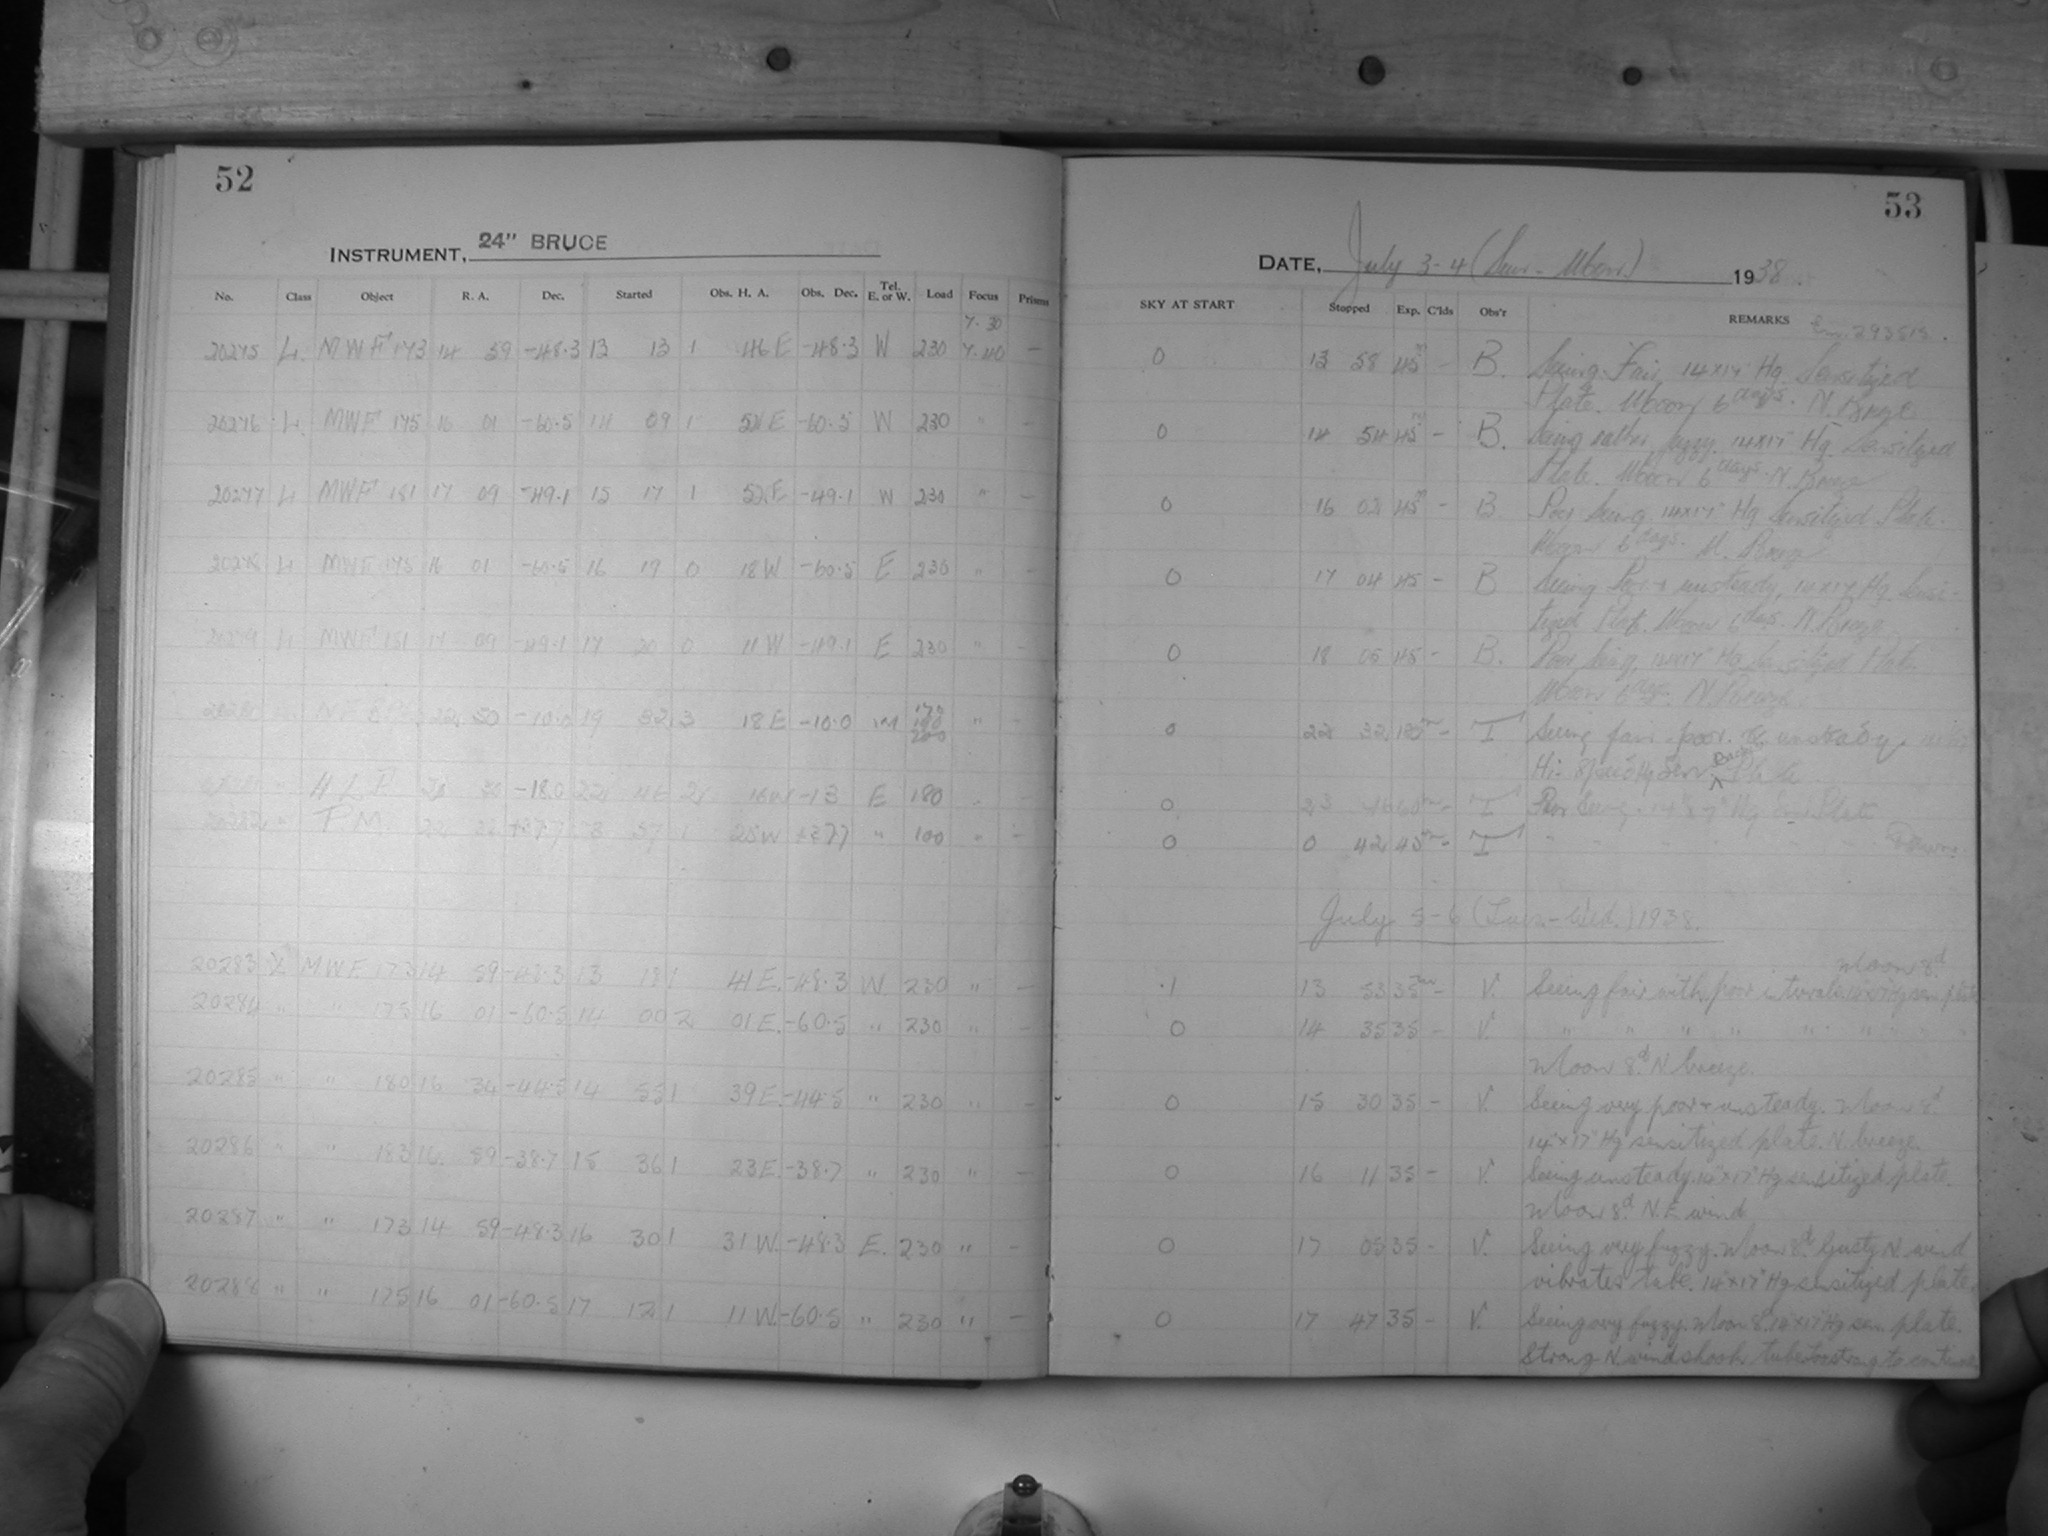 52
INSTRUMENT, 24" BRUCE
No. Class Object R. A. Dec. Started Obs. H. A. Obs. Dec. Tel. E. or W. Load Focus Prisms
7.30
20275 L. MWF 173 14 59 -48.3 13 13 1 46 E -48.3 W 230 7.40 —
20276 L. MWF 175 16 01 -60.5 14 09 1 52 E -60.5 W 230 " —
20277 L MWF 181 17 09 -49.1 15 17 1 52 E -49.1 W 230 " —
20278 L MWF 175 16 01 -60.5 16 19 0 18 W -60.5 E 230 " —
20279 L MWF 181 17 09 -49.1 17 20 0 11 W -49.1 E 230 " —
20280 22 50 -10.0 19 32 3 18 E -10.0 " —
HLF -18.0 22 -13 E 180
20282 " 37 1 25 W " 100 " —
20283 MWF 173 14 59 -48.3 13 18 1 41 E. -48.3 W. 230 " —
20284 " " 175 16 01 -60.5 14 00 2 01 E. -60.5 " 230 " —
20285 " " 180 16 34 -44.5 14 55 1 39 E. -44.5 " 230 " —
20286 " " 183 16 59 -38.7 15 36 1 23 E. -38.7 " 230 " —
20287 " " 173 14 59 -48.3 16 30 1 31 W. -48.3 E. 230 " —
20288 " " 175 16 01 -60.5 17 12 1 11 W. -60.5 " 230 " —
53
DATE, July 3-4 (Sun-Mon) 1938.
SKY AT START Stopped Exp. C'lds Obs'r REMARKS
0 13 58 45m - B. Seeing Fair, 14x17" Hg. Sensitized
Plate. Moon 6 days. N. Breeze
0 14 54 45m - B. Seeing rather fuzzy. 14x17" Hg Sensitized
Plate. Moon 6 days. N. Breeze
0 16 02 45m - B Poor Seeing. 14x17" Hg Sensitized Plate.
Moon 6 days. N. Breeze
0 17 04 45 - B Seeing Poor & unsteady, 14x17 Hg Sensi-
tized Plate. Moon 6 days. N. Breeze
0 18 05 45 - B. Poor Seeing, 14x17" Hg Sensitized Plate.
Moon 6 days. N. Breeze.
0 22 32 180m - T Seeing fair - poor & unsteady.
Plate
0 23 46 60m - T Poor Seeing. 14"x17" Hg Sen. Plate
0 0 42 45m - T " " " " " " Dawn.
July 5-6 (Tues.-Wed.) 1938.
Moon 8d.
.1 13 53 35m - V. Seeing fair with poor intervals. 14"x17" Hg sen. plate
0 14 35 35 - V. " " " " " " " "
Moon 8d. N. breeze.
0 15 30 35 - V. Seeing very poor & unsteady. Moon 8d.
14"x17" Hg sensitized plate. N. breeze.
0 16 11 35 - V. Seeing unsteady. 14"x17" Hg sensitized plate.
Moon 8d. N.E. wind
0 17 05 35 - V. Seeing very fuzzy. Moon 8d. Gusty N. wind
vibrates tube. 14"x17" Hg sensitized plate.
0 17 47 35 - V. Seeing very fuzzy. Moon 8d. 14x17 Hg sen. plate.
Strong N. wind shook tube too strong to continue